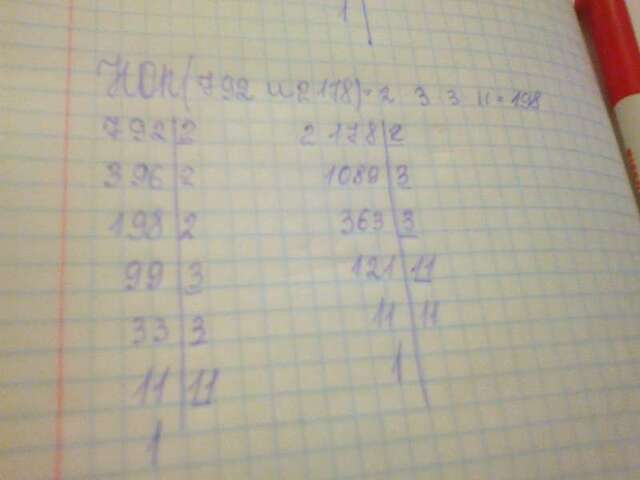 НОК(792 и 2178)=2 3 3 11=198
792|2 2178|2
396|2 1089|3
198|2 363|3
99|3 121|11
33|3 11|11
11|11 1
1